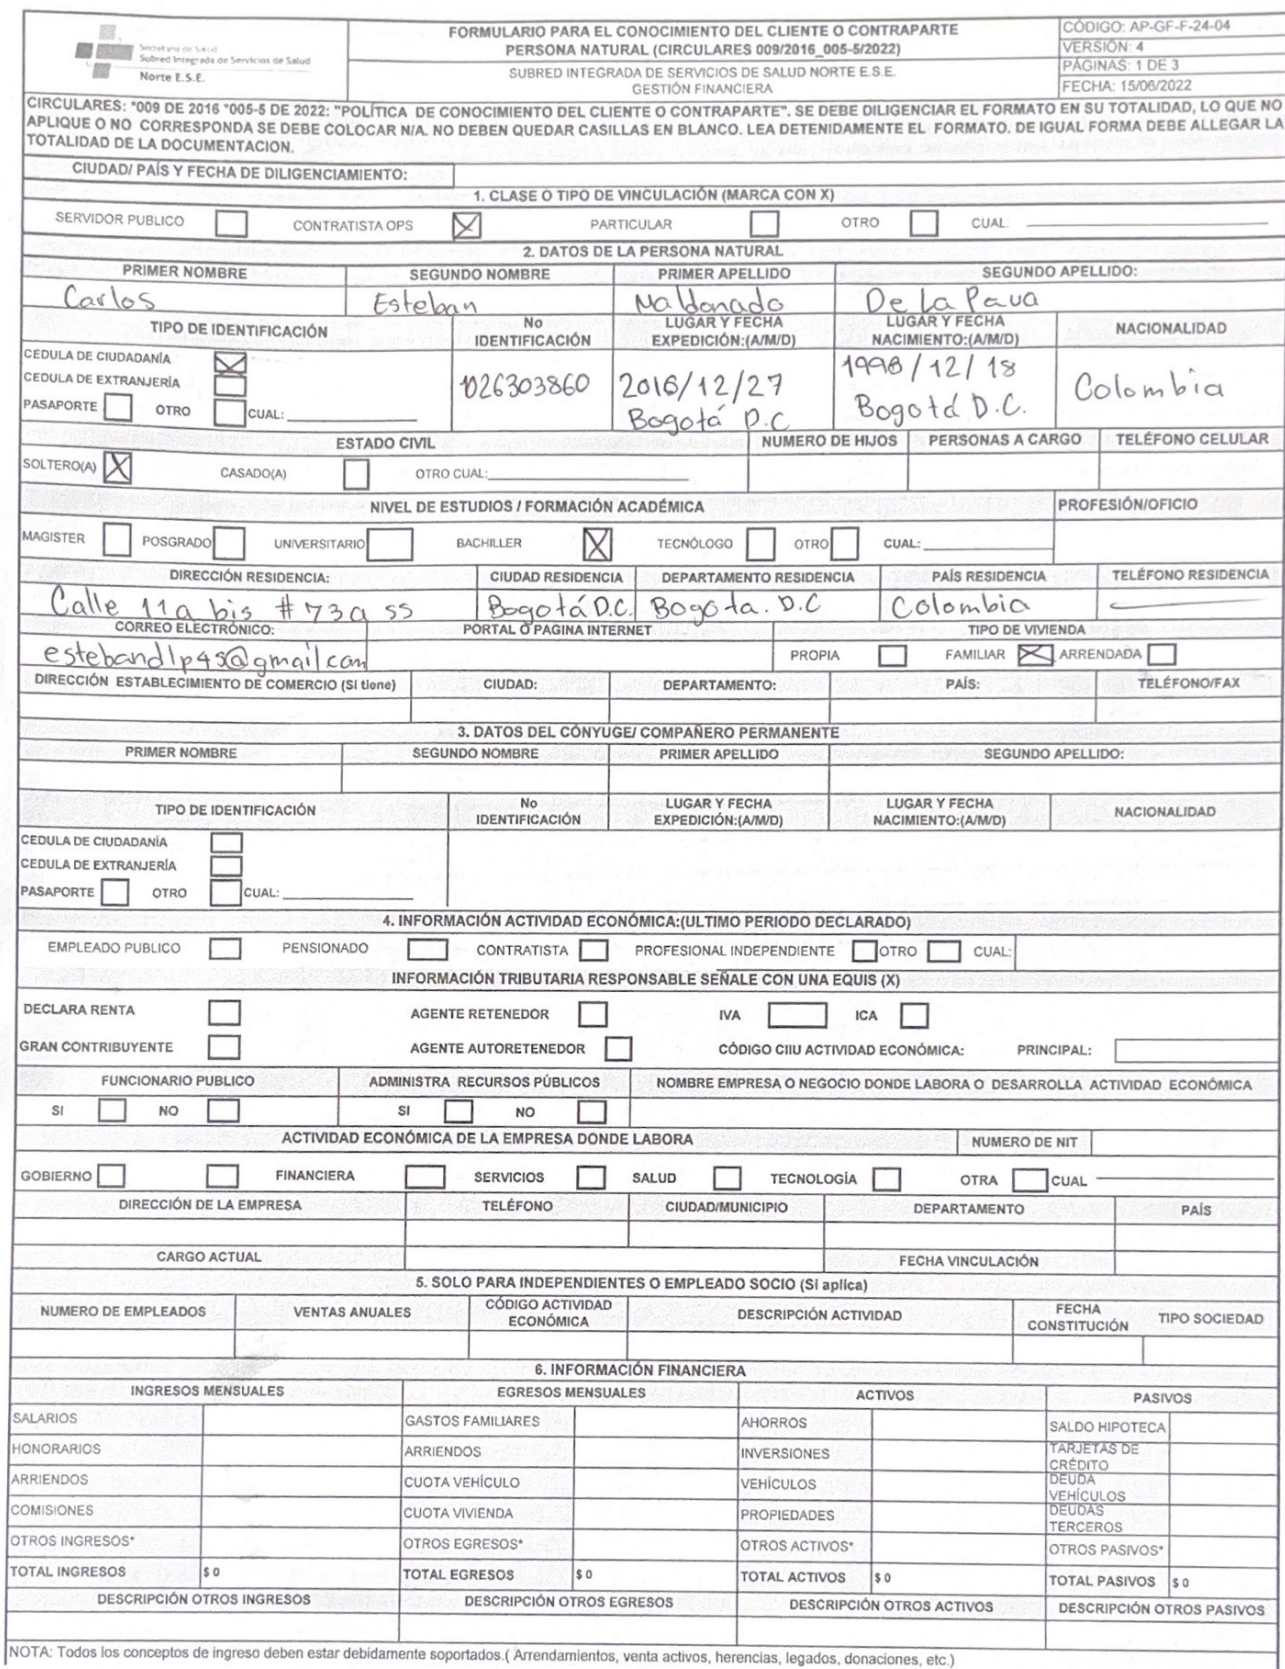 Secretaría de Salud
Subred Integrada de Servicios de Salud
Norte E.S.E.
FORMULARIO PARA EL CONOCIMIENTO DEL CLIENTE O CONTRAPARTE
PERSONA NATURAL (CIRCULARES 009/2016_005-5/2022)
SUBRED INTEGRADA DE SERVICIOS DE SALUD NORTE E.S.E.
GESTIÓN FINANCIERA
CÓDIGO: AP-GF-F-24-04
VERSIÓN: 4
PÁGINAS: 1 DE 3
FECHA: 15/06/2022
CIRCULARES: *009 DE 2016 *005-5 DE 2022: "POLÍTICA DE CONOCIMIENTO DEL CLIENTE O CONTRAPARTE". SE DEBE DILIGENCIAR EL FORMATO EN SU TOTALIDAD, LO QUE NO
APLIQUE O NO CORRESPONDA SE DEBE COLOCAR N/A. NO DEBEN QUEDAR CASILLAS EN BLANCO. LEA DETENIDAMENTE EL FORMATO. DE IGUAL FORMA DEBE ALLEGAR LA
TOTALIDAD DE LA DOCUMENTACION.
CIUDAD/ PAÍS Y FECHA DE DILIGENCIAMIENTO:
1. CLASE O TIPO DE VINCULACIÓN (MARCA CON X)
SERVIDOR PUBLICO CONTRATISTA OPS X PARTICULAR OTRO CUAL.
2. DATOS DE LA PERSONA NATURAL
PRIMER NOMBRE SEGUNDO NOMBRE PRIMER APELLIDO SEGUNDO APELLIDO:
Carlos Esteban Maldonado De La Pava
TIPO DE IDENTIFICACIÓN No IDENTIFICACIÓN LUGAR Y FECHA EXPEDICIÓN:(A/M/D) LUGAR Y FECHA NACIMIENTO:(A/M/D) NACIONALIDAD
CEDULA DE CIUDADANÍA X
CEDULA DE EXTRANJERÍA
PASAPORTE OTRO CUAL:
1026303860 2016/12/27 Bogotá D.C 1998/12/18 Bogotá D.C. Colombia
ESTADO CIVIL NUMERO DE HIJOS PERSONAS A CARGO TELÉFONO CELULAR
SOLTERO(A) X CASADO(A) OTRO CUAL:
NIVEL DE ESTUDIOS / FORMACIÓN ACADÉMICA PROFESIÓN/OFICIO
MAGISTER POSGRADO UNIVERSITARIO BACHILLER X TECNÓLOGO OTRO CUAL:
DIRECCIÓN RESIDENCIA: CIUDAD RESIDENCIA DEPARTAMENTO RESIDENCIA PAÍS RESIDENCIA TELÉFONO RESIDENCIA
Calle 11a bis # 73a 55 Bogotá D.C. Bogota. D.C Colombia
CORREO ELECTRÓNICO: PORTAL O PAGINA INTERNET TIPO DE VIVIENDA
estebandlp45@gmail.com PROPIA FAMILIAR X ARRENDADA
DIRECCIÓN ESTABLECIMIENTO DE COMERCIO (Si tiene) CIUDAD: DEPARTAMENTO: PAÍS: TELÉFONO/FAX
3. DATOS DEL CÓNYUGE/ COMPAÑERO PERMANENTE
PRIMER NOMBRE SEGUNDO NOMBRE PRIMER APELLIDO SEGUNDO APELLIDO:
TIPO DE IDENTIFICACIÓN No IDENTIFICACIÓN LUGAR Y FECHA EXPEDICIÓN:(A/M/D) LUGAR Y FECHA NACIMIENTO:(A/M/D) NACIONALIDAD
CEDULA DE CIUDADANÍA
CEDULA DE EXTRANJERÍA
PASAPORTE OTRO CUAL:
4. INFORMACIÓN ACTIVIDAD ECONÓMICA:(ULTIMO PERIODO DECLARADO)
EMPLEADO PUBLICO PENSIONADO CONTRATISTA PROFESIONAL INDEPENDIENTE OTRO CUAL:
INFORMACIÓN TRIBUTARIA RESPONSABLE SEÑALE CON UNA EQUIS (X)
DECLARA RENTA AGENTE RETENEDOR IVA ICA
GRAN CONTRIBUYENTE AGENTE AUTORETENEDOR CÓDIGO CIIU ACTIVIDAD ECONÓMICA: PRINCIPAL:
FUNCIONARIO PUBLICO ADMINISTRA RECURSOS PÚBLICOS NOMBRE EMPRESA O NEGOCIO DONDE LABORA O DESARROLLA ACTIVIDAD ECONÓMICA
SI NO SI NO
ACTIVIDAD ECONÓMICA DE LA EMPRESA DONDE LABORA NUMERO DE NIT
GOBIERNO FINANCIERA SERVICIOS SALUD TECNOLOGÍA OTRA CUAL
DIRECCIÓN DE LA EMPRESA TELÉFONO CIUDAD/MUNICIPIO DEPARTAMENTO PAÍS
CARGO ACTUAL FECHA VINCULACIÓN
5. SOLO PARA INDEPENDIENTES O EMPLEADO SOCIO (Si aplica)
NUMERO DE EMPLEADOS VENTAS ANUALES CÓDIGO ACTIVIDAD ECONÓMICA DESCRIPCIÓN ACTIVIDAD FECHA CONSTITUCIÓN TIPO SOCIEDAD
6. INFORMACIÓN FINANCIERA
INGRESOS MENSUALES EGRESOS MENSUALES ACTIVOS PASIVOS
SALARIOS GASTOS FAMILIARES AHORROS SALDO HIPOTECA
HONORARIOS ARRIENDOS INVERSIONES TARJETAS DE CRÉDITO
ARRIENDOS CUOTA VEHÍCULO VEHÍCULOS DEUDA VEHÍCULOS
COMISIONES CUOTA VIVIENDA PROPIEDADES DEUDAS TERCEROS
OTROS INGRESOS* OTROS EGRESOS* OTROS ACTIVOS* OTROS PASIVOS*
TOTAL INGRESOS $ 0 TOTAL EGRESOS $ 0 TOTAL ACTIVOS $ 0 TOTAL PASIVOS $ 0
DESCRIPCIÓN OTROS INGRESOS DESCRIPCIÓN OTROS EGRESOS DESCRIPCIÓN OTROS ACTIVOS DESCRIPCIÓN OTROS PASIVOS
NOTA: Todos los conceptos de ingreso deben estar debidamente soportados.( Arrendamientos, venta activos, herencias, legados, donaciones, etc.)